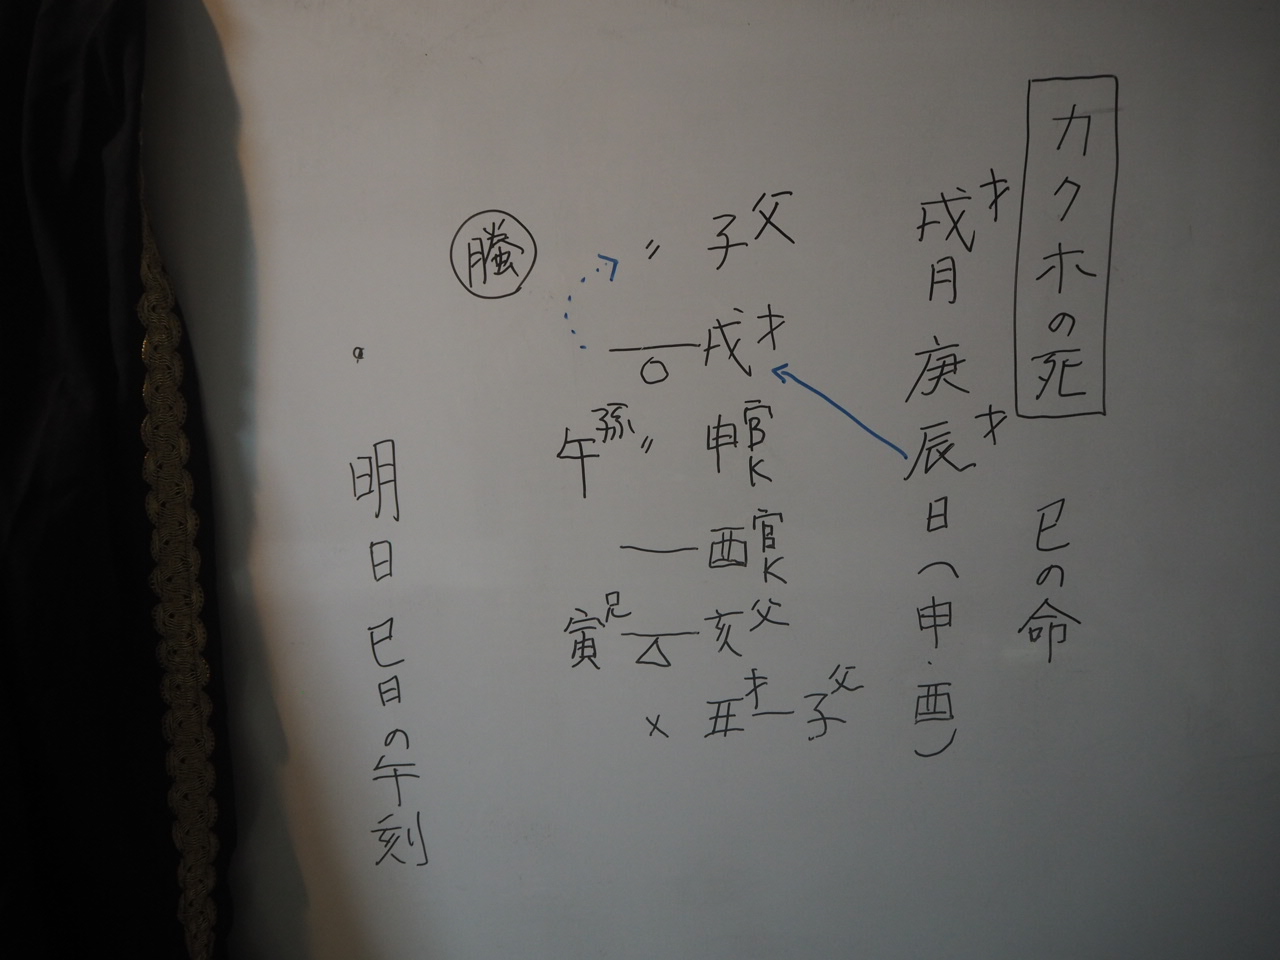 カクホの死
巳の命
戌才月庚辰才日(申・酉)
父子〃
才戌
官K申〃孫午
官K酉
父亥兄寅
父子才丑×
騰
明日巳日の午刻